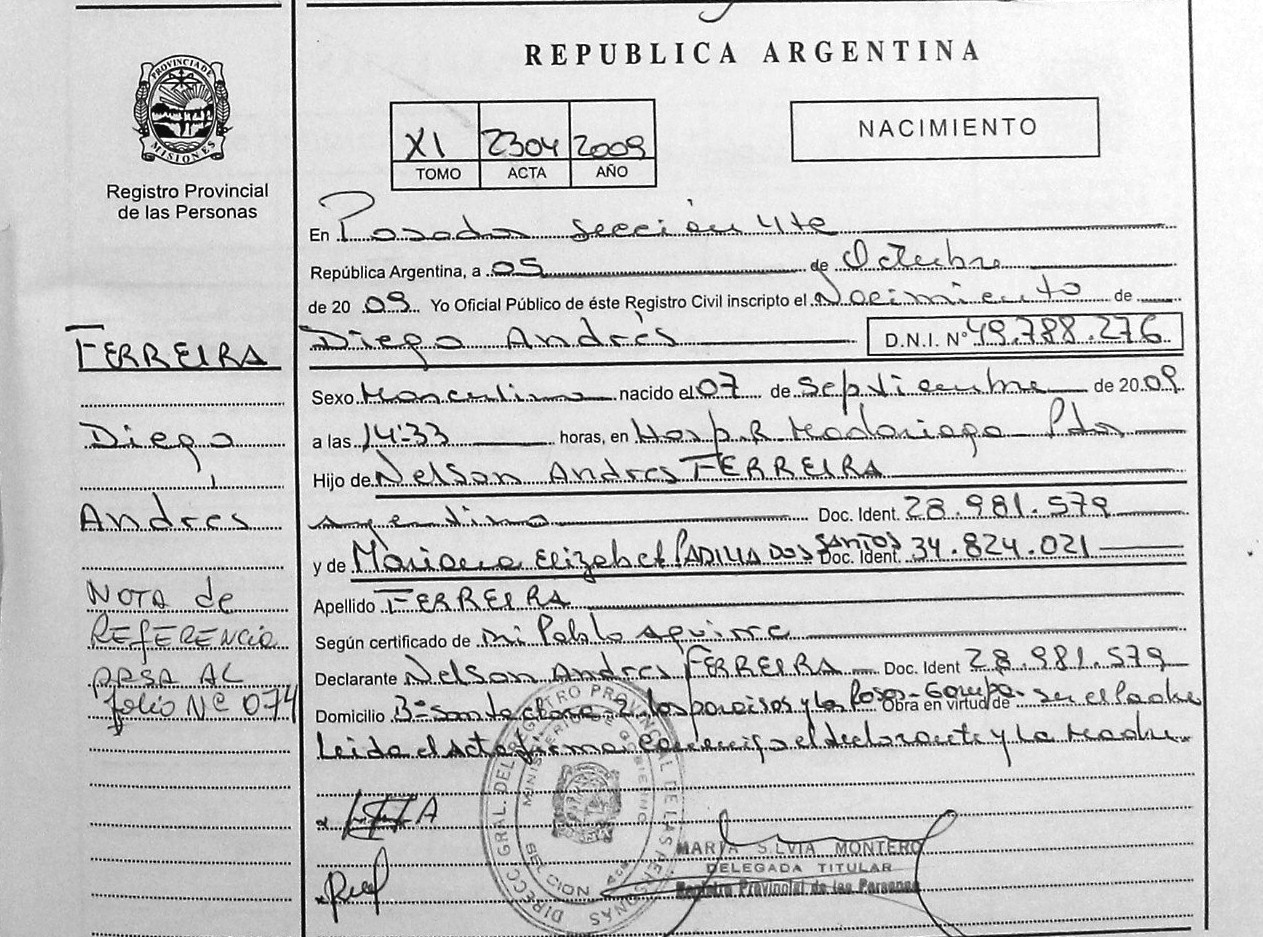 REPUBLICA ARGENTINA
PROVINCIA DE MISIONES
Registro Provincial
de las Personas
XI 2304 2009
TOMO ACTA AÑO
NACIMIENTO
En Posadas sección 4te
República Argentina, a 05 de Octubre
de 2009 Yo Oficial Público de éste Registro Civil inscripto el Nacimiento de
Diego Andrés D.N.I. Nº 49.788.276
Sexo Masculino nacido el 07 de Septiembre de 2009
a las 14:33 horas, en Hosp. R Madariaga Pdas
Hijo de Nelson Andres FERREIRA
argentino Doc. Ident. 28.981.579
y de Mariana Elizabet PADILLA DOS SANTOS Doc. Ident. 34.824.021
Apellido FERREIRA
Según certificado de Pablo Aguirre
Declarante Nelson Andres FERREIRA Doc. Ident 28.981.579
Domicilio Bº Santa Clara 2 los paraisos y las Rosas - Garupa - Obra en virtud de ser el Padre
Leida el Acta firman conmigo el declarante y la Madre
FERREIRA
Diego
Andrés
NOTA de
REFERENCIA
PASA AL
folio Nº 074
DIRECC. GRAL. DEL REGISTRO PROVINCIAL DE LAS PERSONAS
MINISTERIO DE GOBIERNO
MARIA SILVIA MONTERO
DELEGADA TITULAR
Registro Provincial de las Personas